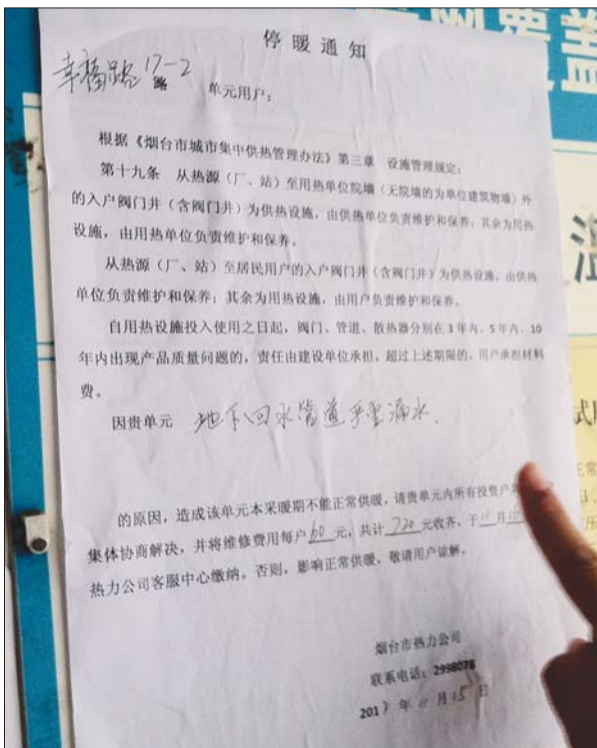 停暖通知
幸福路17-2 单元用户：
根据《烟台市城市集中供热管理办法》第三章 设施管理规定：
第十九条 从热源（厂、站）至用热单位院墙（无院墙的为单位建筑物墙）外
的入户阀门井（含阀门井）为供热设施，由供热单位负责维护和保养；其余为用热
设施，由用热单位负责维护和保养。
从热源（厂、站）至居民用户的入户阀门井（含阀门井）为供热设施，由供热
单位负责维护和保养；其余为用热设施，由用户负责维护和保养。
自用热设施投入使用之日起，阀门、管道、散热器分别在3年内、5年内、10
年内出现产品质量问题的，责任由建设单位承担。超过上述期限的，用户承担材料
费。
因贵单元 地下回水管道严重漏水.
的原因，造成该单元本采暖期不能正常供暖，请贵单元内所有投资户
集体协商解决，并将维修费用每户60元，共计720元收齐，于11月
热力公司客服中心缴纳。否则，影响正常供暖，敬请用户谅解。
烟台市热力公司
联系电话：2998078
2017年11月15日
覆盖